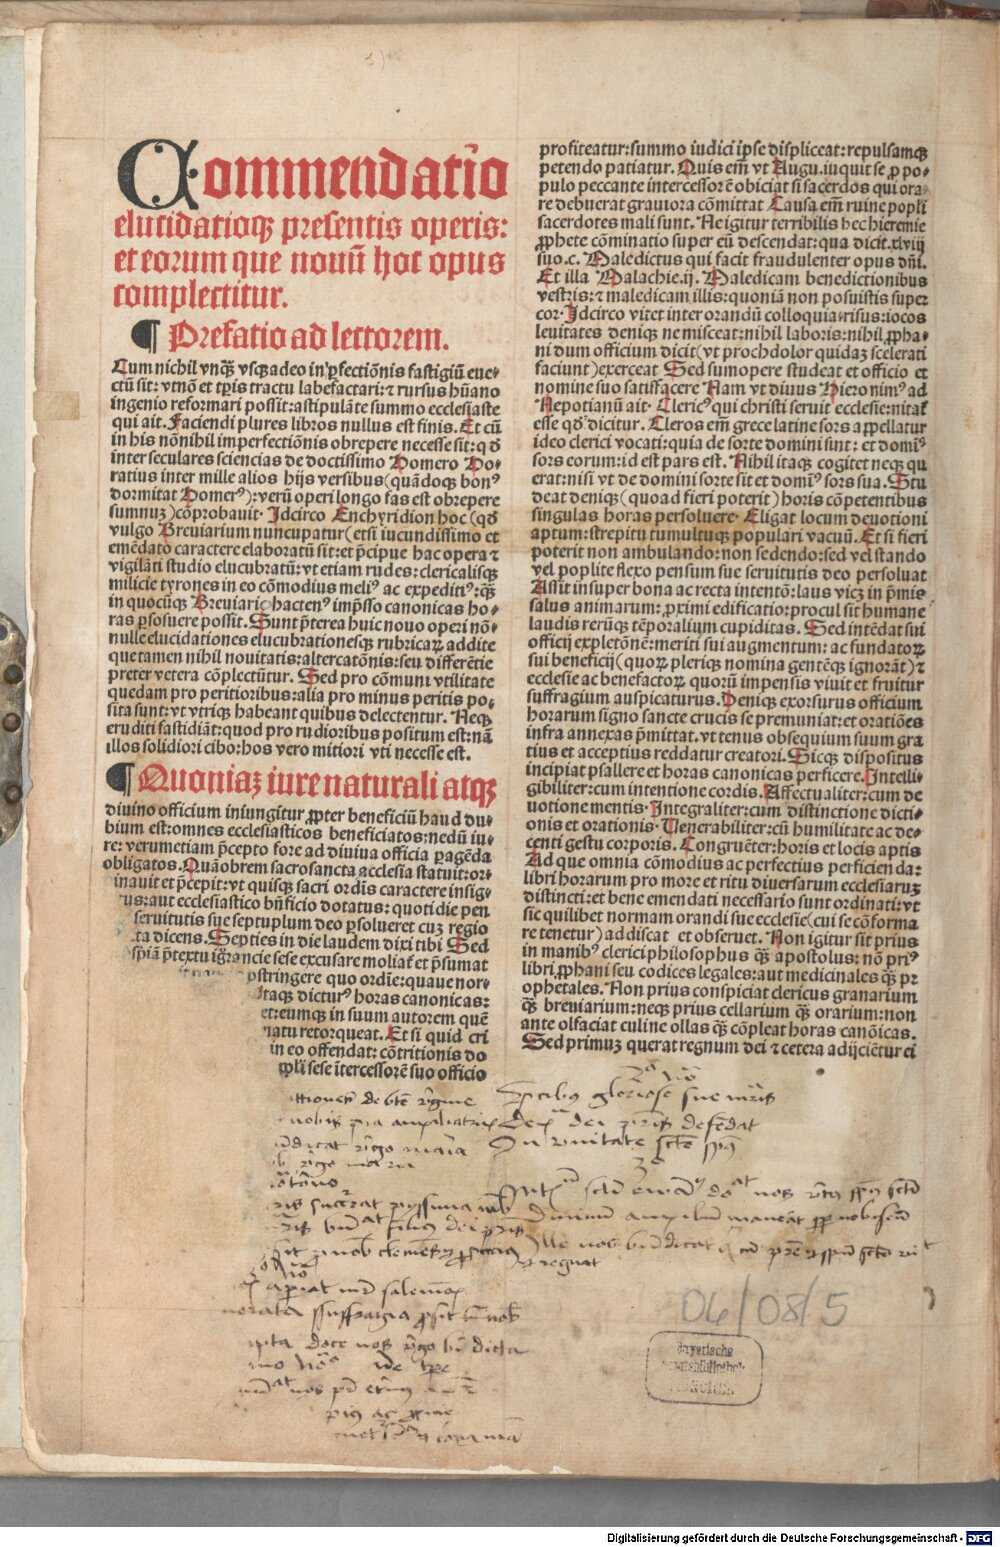 Commendatio
elucidatioq̃ꝫ presentis operis:
et eorum que nouũ hoc opus
complectitur.
¶ Prefatio ad lectorem.
Cum nichil vnq̃ꝫ vsqꝫ adeo in ꝑfectiõnis fastigiũ eue⸗
ctũ sit: vt nõ et tꝑis tractu labefactari: ⁊ rursus hũano
ingenio reformari possit: astipulãte summo ecclesiaste
qui ait. Faciendi plures libros nullus est finis. Et cũ
in his nõnihil imperfectiõnis obrepere necesse sit: qđ
inter seculares sciencias de doctissimo Homero Ho⸗
ratius inter mille alios hijs versibus (quãdoqꝫ bonꝰ
dormitat Homerꝰ): verũ operi longo fas est obrepere
sumnuꝫ) cõprobauit. Idcirco Enchyridion hoc (qđ
vulgo Breuiarium nuncupatur (etsi iucundissimo et
emẽdato caractere elaboratũ sit: et p̃cipue hac opera ⁊
vigilãti studio elucubratũ: vt etiam rudes: clericalisqꝫ
milicie tyrones in eo cõmodius meliꝰ ac expeditiꝰ: q̃ꝫ
in quocũqꝫ Breuiario hactenꝰ imp̃sso canonicas ho⸗
ras ꝑsoluere possit. Sunt p̃terea huic nouo operi nõ⸗
nulle elucidationes elucubrationesqꝫ rubricaꝝ addite
que tamen nihil nouitatis: altercatõnis: seu differẽtie
preter vetera cõplectũtur. Sed pro cõmuni vtilitate
quedam pro peritioribus: alia pro minus peritis po⸗
sita sunt: vt vtriqꝫ habeant quibus delectentur. Neqꝫ
eruditi fastidiãt: quod pro rudioribus positum est: nã
illos solidiori cibo: hos vero mitiori vti necesse est.
¶ Quoniaꝫ iure naturali atqꝫ
diuino officium iniungitur ꝓpter beneficiũ haud du⸗
bium est: omnes ecclesiasticos beneficiatos: nedũ iu⸗
re: verumetiam p̃cepto fore ad diuiua officia ꝑagẽda
obligatos. Quãobrem sacrosancta ecclesia statuit: or⸗
inauit et p̃cepit: vt quisqꝫ sacri ordĩs caractere insig⸗
us: aut ecclesiastico bñficio dotatus: quotidie pen
seruitutis sue septuplum deo ꝑsolueret cuꝫ regio
ta dicens. Septies in die laudem dixi tibi Sed
spiã p̃textu ig̃rancie sese excusare moliat̃ et p̃sumat
ostringere quo ordĩe: quaue nor⸗
itaqꝫ dicturꝰ horas canonicas:
et: eumqꝫ in suum autorem quẽ
natu retorqueat. Et si quid cri
in eo offendat: cõtritionis do
ipli sese ĩtercessorẽ suo officio
profiteatur: summo iudici ipse displiceat: repulsamqꝫ
petendo patiatur. Quis em̃ vt Augu. iuquit se ꝓ po⸗
pulo peccante intercessorẽ obiciat si sacerdos qui ora⸗
re debuerat grauiora cõmittat Causa em̃ ruine popli
sacerdotes mali sunt. Ne igitur terribilis hec hieremie
ꝓphete cõminatio super eũ descendat: qua dicit. xlviij
suo. c. Maledictus qui facit fraudulenter opus dñi.
Et illa Malachie. ij. Maledicam benedictionibus
vestris: ⁊ maledicam illis: quoniã non posuistis super
cor. Idcirco vitet inter orandũ colloquia: risus: iocos
leuitates deniqꝫ ne misceat: nihil laboris: nihil ꝓpha⸗
ni dum officium dicit (vt prochdolor quidaꝫ scelerati
faciunt) exerceat Sed sumopere studeat et officio et
nomine suo satisfacere Nam vt diuus Hieronimꝰ ad
Nepotianũ ait. Clericꝰ qui christi seruit ecclesie: nitat̃
esse qđ dicitur. Cleros em̃ grece latine sors appellatur
ideo clerici vocati: quia de sorte domini sunt: et domĩꝰ
sors eorum: id est pars est. Nihil itaqꝫ cogitet neqꝫ qu
erat: nisi vt de domini sorte sit et domĩꝰ sors sua. Stu
deat deniqꝫ (quoad fieri poterit) horis cõpetentibus
singulas horas persoluere. Eligat locum deuotioni
aptum: strepitu tumultuqꝫ populari vacuũ. Et si fieri
poterit non ambulando: non sedendo: sed vel stando
vel poplite flexo pensum sue seruitutis deo persoluat
Assit insuper bona ac recta intentõ: laus vicꝫ in p̃mis
salus animarum: ꝓximi edificatio: procul sit humane
laudis rerũqꝫ tẽporalium cupiditas. Sed intẽdat sui
officij expletõnẽ: meriti sui augmentum: ac fundatoꝝ
sui beneficij (quoꝝ pleriqꝫ nomina gentẽqꝫ ignorãt) ⁊
ecclesie ac benefactoꝝ quorũ impensis viuit et fruitur
suffragium auspicaturus. Deniqꝫ exorsurus officium
horarum signo sancte crucis se premuniat: et oratiões
infra annexas p̃mittat. vt tenus obsequium suum gra
tius et acceptius reddatur creatori. Sicqꝫ dispositus
incipiat psallere et horas canonicas perficere. Intelli⸗
gibiliter: cum intentione cordis. Affectualiter: cum de
uotione mentis. Integraliter: cum distinctione dicti⸗
onis et orationis. Uenerabiliter: cũ humilitate ac de⸗
centi gestu corporis. Congruẽter: horis et locis aptis
Ad que omnia cõmodius ac perfectius perficienda:
libri horarum pro more et ritu diuersarum ecclesiaruꝫ
distincti: et bene emendati necessario sunt ordinati: vt
sic quilibet normam orandi sue ecclesie (cui se cõforma
re tenetur) addiscat et obseruet. Non igitur sit prius
in manibꝰ clerici philosophus q̃ꝫ apostolus: nõ priꝰ
libri ꝓphani seu codices legales: aut medicinales q̃ꝫ pr
ophetales. Non prius conspiciat clericus granarium
q̃ꝫ breuiarium: neqꝫ prius cellarium q̃ꝫ orarium: non
ante olfaciat culine ollas q̃ꝫ cõpleat horas canõicas.
Sed primuꝫ querat regnum dei ⁊ cetera adijciẽtur ei
de bte ṽgine
nobis pia
ṽgo maria
ṽgo maria
gloriose sue mr̃is
dei defẽdat
In vnitate scti
nobiscũ
regnat
06/08/5
Bayerische
Staatsbibliothek
MÜNCHEN
Digitalisierung gefördert durch die Deutsche Forschungsgemeinschaft - DFG